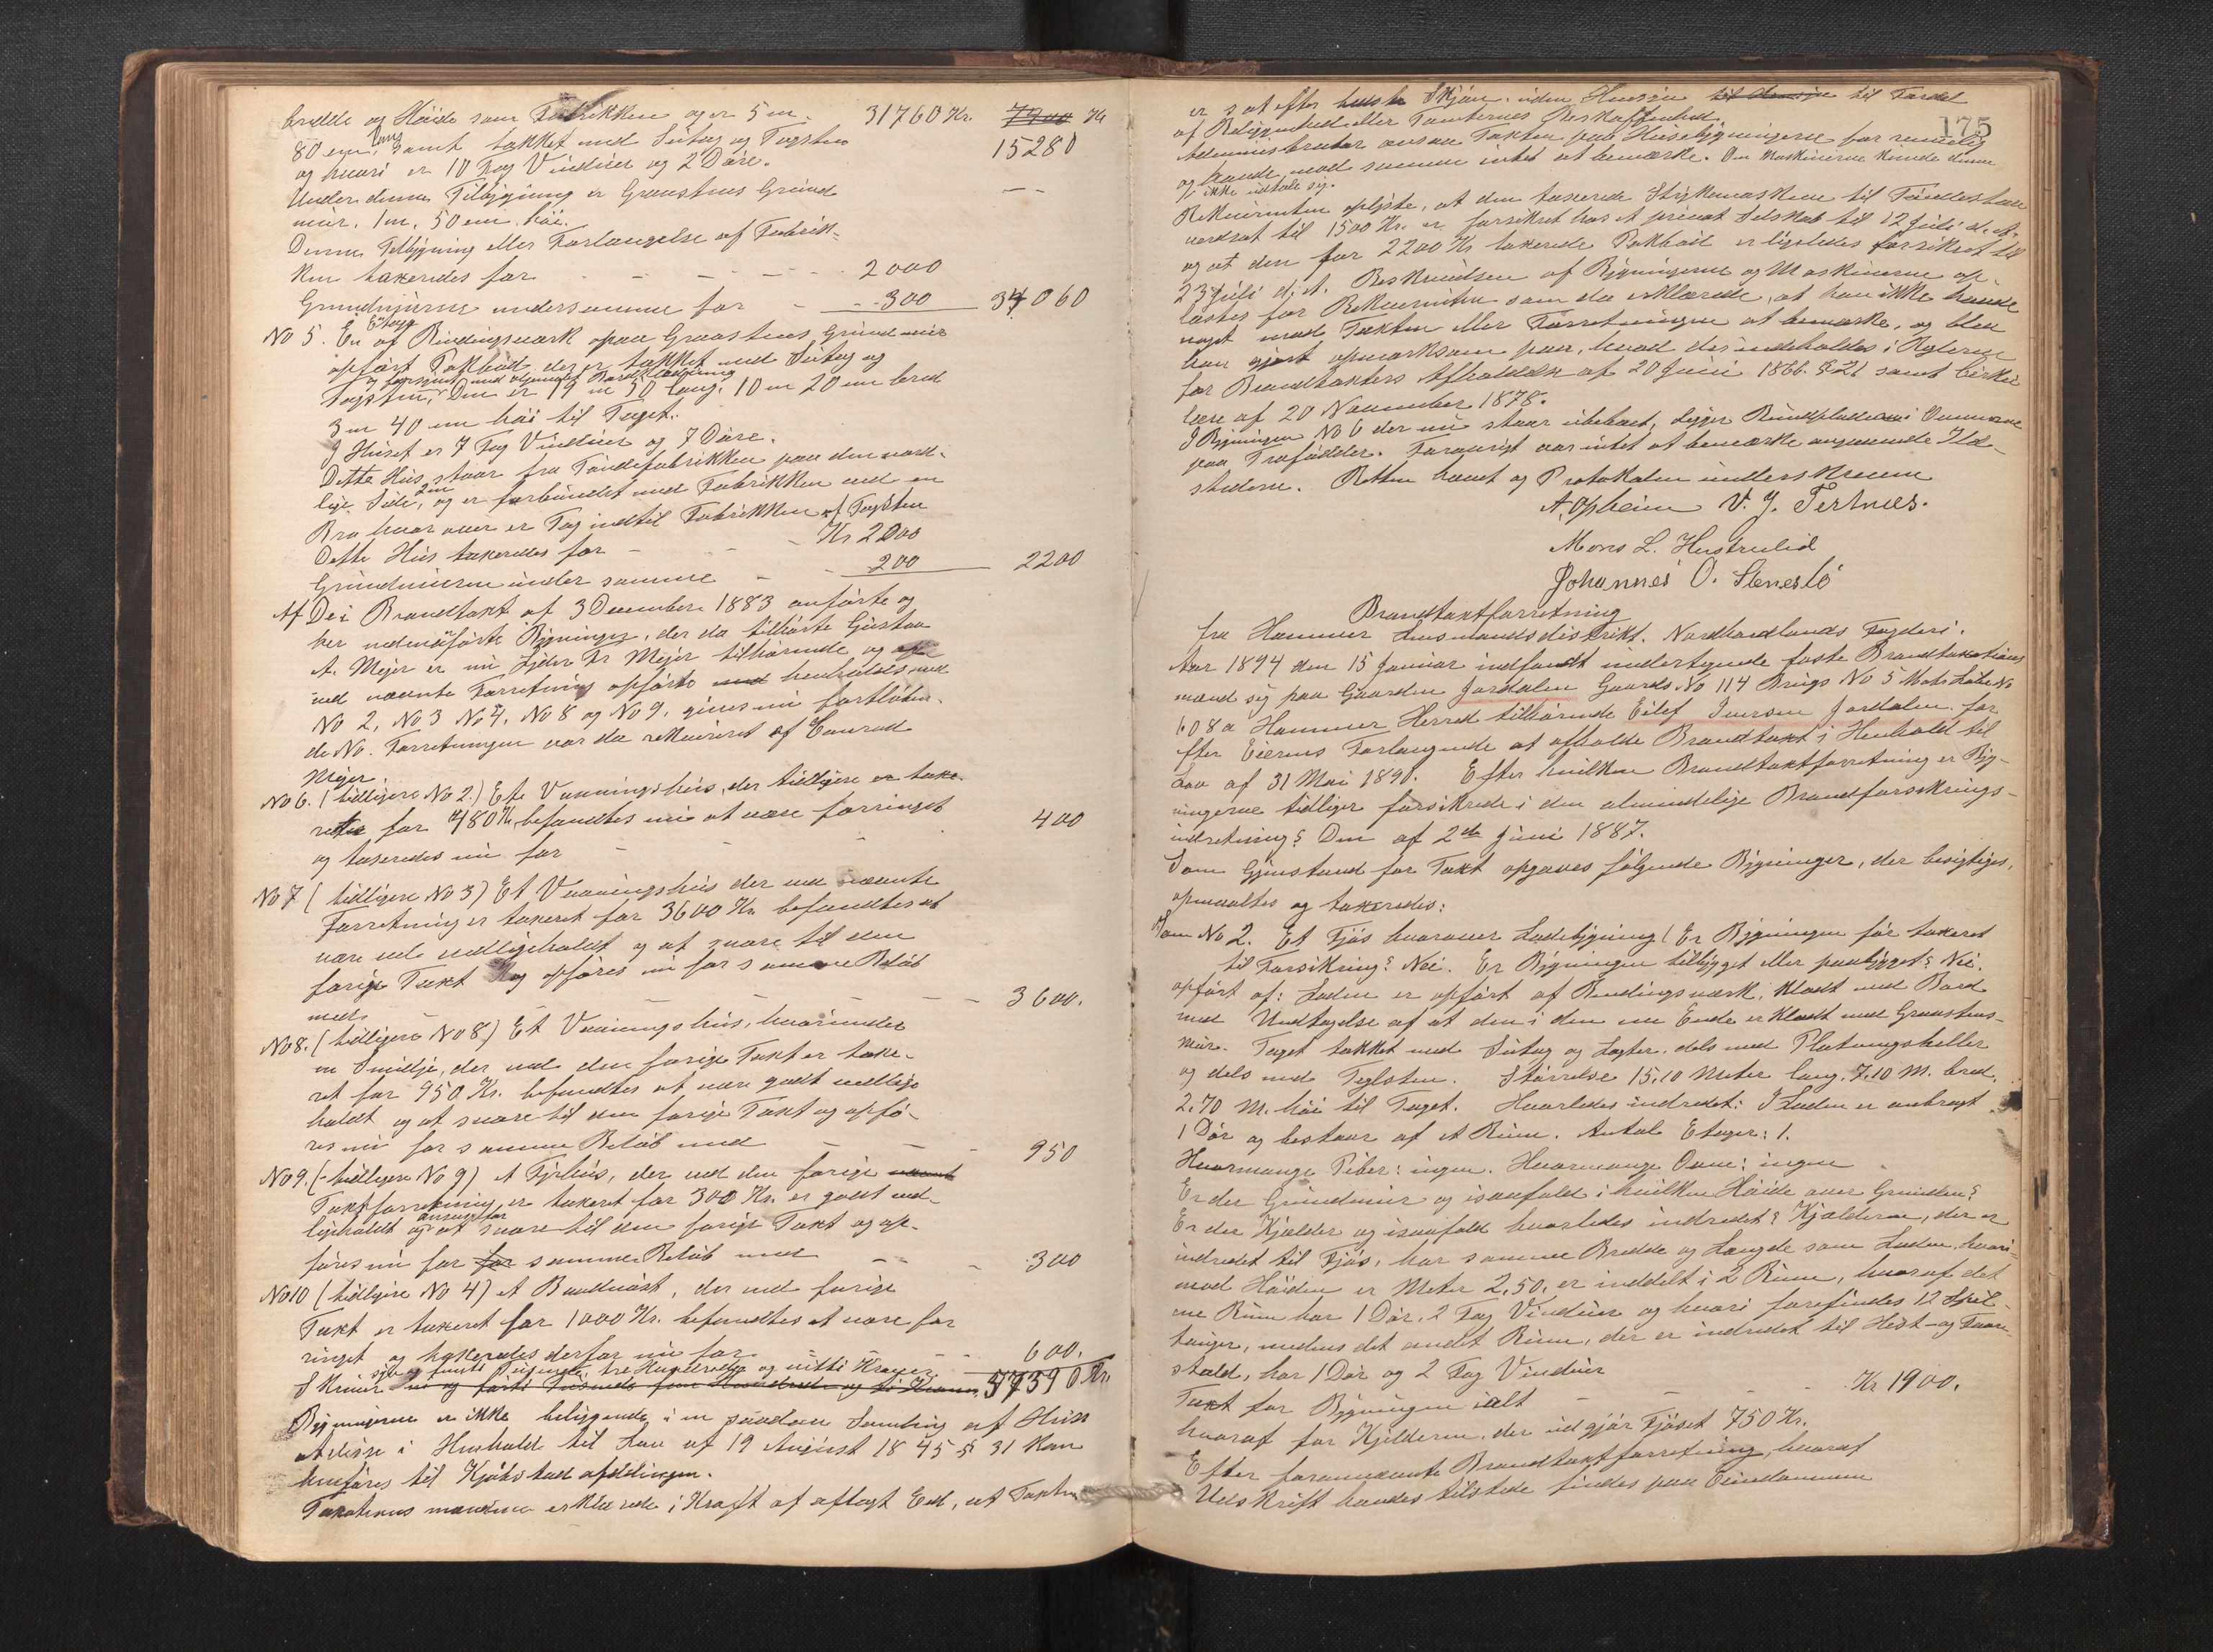 bredde og Höide som Fabrikken og er 5 m 31760 Kr. 7900 Kr
80 cm lang, samt tækket med Sutag og Tagsten 15280
og hvori er 10 Fag Vinduer og 2 Döre.
Under denne Tilbygning er Graastens Grund
mur. 1 m. 50 cm höi. — —
Denne Tilbygning eller Forlængelse af Fabrik-
ken taxeredes for - - - - 2000
Grundmurene undersamme for - - 300 34060
No 5. En Etages af Bindingsværk opaa Graastens Grundmur
opfört Pakbod, der er tækket med Sutag og
Tagsten, og forsynet med udvendig Bordklædning Den er 19 m 50 lang, 10 m 20 cm bred
3 m 40 cm höi til Taget.
I Huset er 7 Fag Vinduer og 7 Döre.
Dette Hus staar fra Töndefabrikken paa den nord-
lige Side, 2 m og er forbundet med Fabrikken med en
Bro hvor over er Tag indtil Fabrikken af Tagsten
Dette Hus taxeredes for - - - Kr 2000
Grundmuren under samme - - 200 2200
Af De i Brandtaxt af 3 December 1883 anförte og
her nedenanförte Bygninger, der da tilhörte Gustav
A. Mejer er nu Fr Mejer tilhörende og de
ved nævnte Forretning opförte med henholdsvis
No 2, No 3 No 4, No 8 og No 9, gives nu fortlöben-
de No. Forretningen var da rekvireret af Conrad
Mejer.
No 6. (tidligere No 2.) Ete Vaaningshus, der tidligere er taxe-
ret for 480 Kr, befandtes nu at være forringet
og taxeredes nu for - - - 400
No 7 (tidligere No 3) Et Vaaningshus der ved nævnte
Forretning er taxeret for 3600 Kr befandtes at
være vel vedligeholdt og at svare til den
forige Taxt og opföres nu for samme Belöb
med - - - - 3600.
No 8. (tidligere No 8) Et Vaaningshus, hvorunder
en Smidje, der ved den forige Taxt er taxe-
ret for 950 Kr. befandtes at være godt vedlige
holdt og at svare til den forige Taxt og opfö-
res nu for samme Belöb med - - 950
No 9. (tidligere No 9) et Fyrhus, der ved den forige nævnte
Taxtforretning er taxeret for 300 Kr. er godt ved-
ligeholdt og at svare til den forige Taxt og op-
föres nu for for samme Belöb med - - 300
No 10 (tidligere No 4) et Baadnöst, der ved forige
Taxt er taxeret for 1000 Kr. befandtes at være for
ringet og taxeredes derfor nu for - - 600.
Skriver syv og femti Tusinde tre Hundrede og nitti Kroner 57390 Kr.
Bygningerne er ikke beliggende i en saadan Samling af Huse
at disse i Henhold til Lov af 19 August 1845 § 31 kan
henföres til Kjöbstadafdelingen.
Taxationsmændene erklærede i Kraft af aflagt Eed, at Taxten
175
er sat efter bedste Skjön, uden Hensyn til Fordel
af Beliggenhed eller Tomternes Beskaffenhed.
Administrator ansaa Taxten paa Husebygningerne for rimelig
og havde mod samme intet at bemærke. Om Maskinerne kunde denne
ikke udtale sig.
Rekvirenten oplyste, at den taxerede Stykemaskine til Töndestav
værdsat til 1500 Kr. er forsikret hos et privat Selskab til 12 Juli d. A.
og at den for 2200 Kr taxerede Pakbod er ligeledes forsikret til
23 Juli d. A. Beskrivelsen af Bygningerne og Maskinerne op-
læstes for Rekvirenten som da erklærede, at han ikke havde
noget mod Taxten eller Forretningen at bemærke, og blev
han gjort opmærksom paa, hvad der indeholdes i Reglerne
for Brandtaxters Afholdelse af 20 Juni 1866. § 21 samt Cirku-
lære af 20 November 1878.
I Bygningen No 6 der nu staar ubeboet, ligger Bundpladerne i Ovnene
paa Træfödder. Forövrigt var intet at bemærke angaaende Ild-
stederne. Retten hævet og Protokolen underskreven
A. Opheim V. J. Tertnes.
Mons L. Hestrulid
Johannes O. Stenestö
Brandtaxtforretning
fra Hammer Lensmandsdistrikt. Nordhordlands Fogderi.
Aar 1894 den 15 Januar indfandt undertegnede faste Brandtaxations
mænd sig paa Gaarden Jordalen Gaards No 114 Brugs No 5 Matr Löbe No
608a Hammer Herred tilhörende Eilef Iversen Jordalen. for
efter Eierens Forlangende at afholde Brandtaxt i Henhold til
Lov af 31 Mai 1890. Efter hvilken Brandtaxtforretning er Byg-
ningerne tidliger forsikrede i den almindelige Brandforsikrings-
indretning? Den af 2de Juni 1887.
Som Gjenstand for Taxt opgaves fölgende Bygninger, der besigtiges,
opmaaltes og taxeredes:
Som No 2. Et Fjös hvorover Ladebygning (Er Bygningen för taxeret
til Forsikring? Nei. Er Bygningen tilbygget eller paabygget? Nei.
opfört af: Laden er opfört af Bindingsværk, klædt med Bord
med Undtagelse af at den i den ene Ende er klædt med Graastens-
mur. Taget tækket med Sutag og Lægter, dels med Platningsheller
og dels med Teglsten. Störrelse 15,10 Meter lang, 7,10 M. bred,
2,70 M. höi til Taget. Hvorledes indredet: I Laden er anbragt
1 Dör og bestaar af et Rum. Antal Etager: 1.
Hvormange Piber: ingen. Hvormange Ovne: ingen
Er der Grundmur og isaafald i hvilken Höide over Grunden?
Er der Kjælder og isaafald hvorledes indredet? Kjælderen, der er
indredet til Fjös, har samme Bredde og Længde som Laden, hvori-
mod Höiden er Meter 2,50, er inddelt i 2 Rum, hvoraf det
ene Rum har 1 Dör, 2 Fag Vinduer og hvori forefindes 12 Spil-
touger, medens det andet Rum, der er indredet til Hest- og Faare-
stald, har 1 Dör og 2 Fag Vinduer
Taxt for Bygningen ialt - - - Kr 1900.
hvoraf for Kjelderen, der udgjör Fjöset 750 Kr.
Efter forannævnte Brandtaxtforretning, hvoraf
Udskrift havdes tilstede findes paa Eiendommen